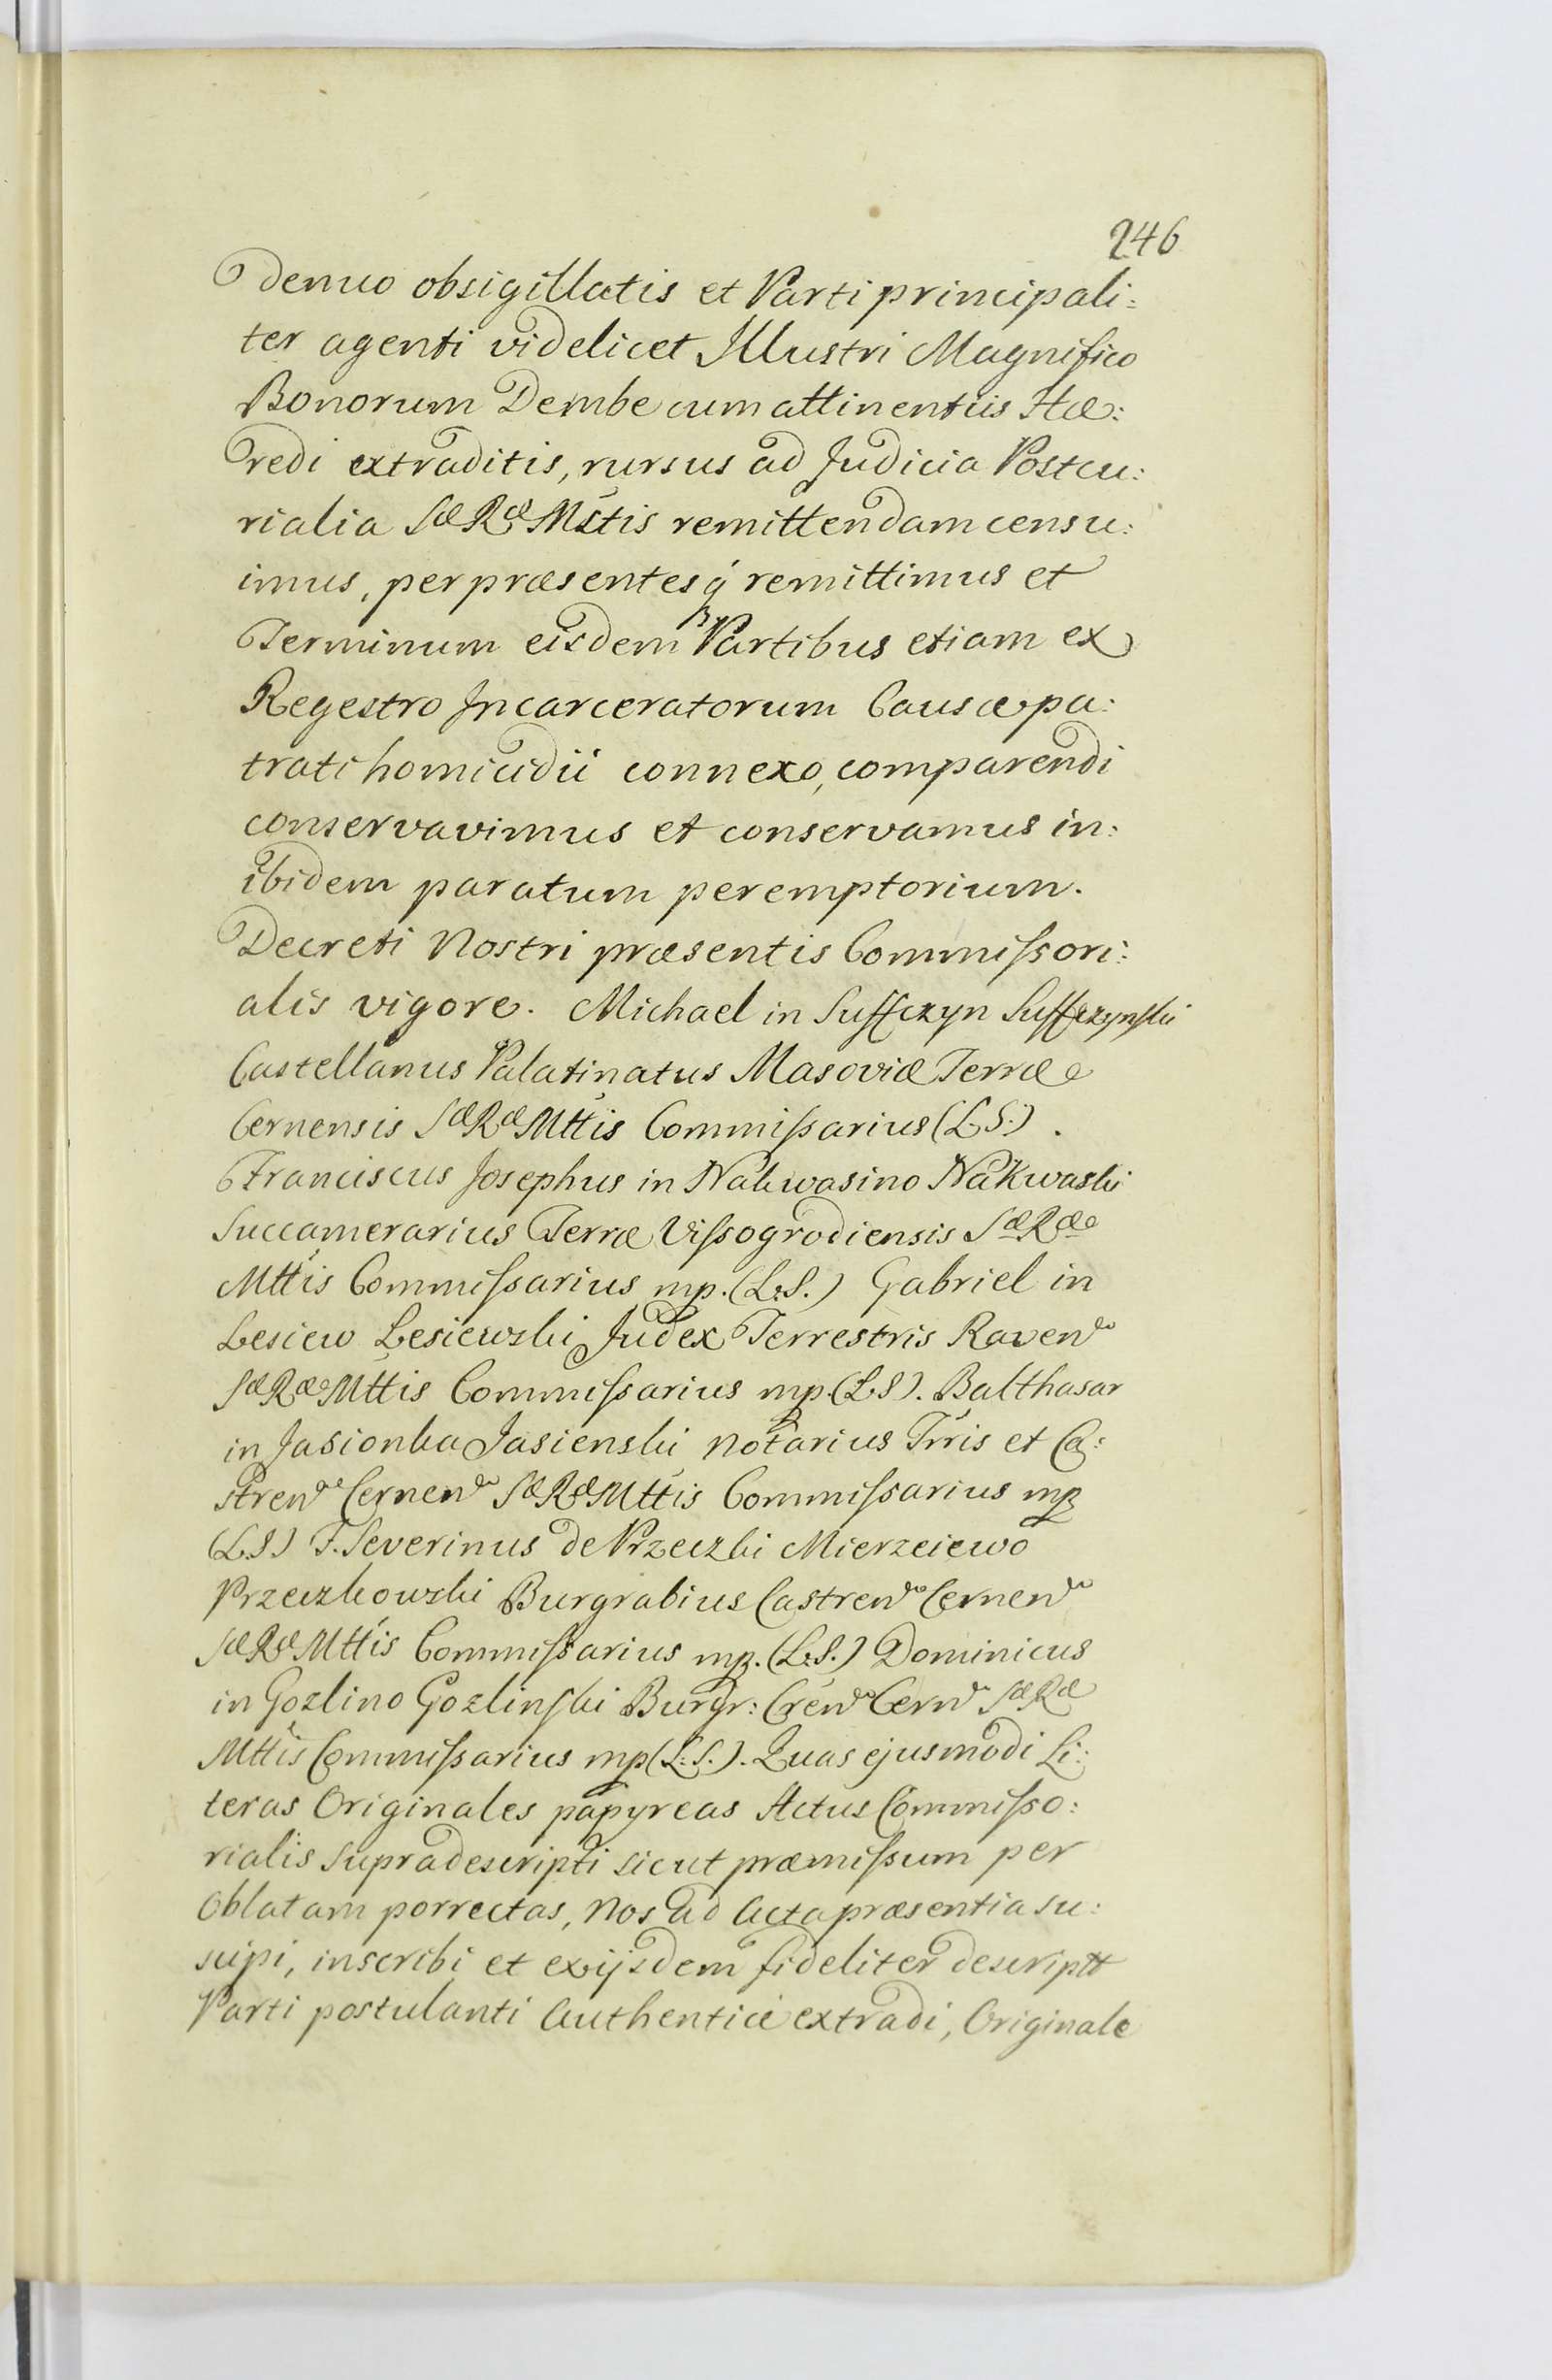 246
denuo obsigillatis et Parti principali:
ter agenti videlicet Illustri Magnifico
Bonorum Dembe cum attinentiis Hæ:
redi extraditis, rursus ad Judicia Postcu:
rialia Sæ Ræ Mttis remittendam censu:
imus, per præsentesq́ remittimus et
Terminum eisdem Partibus etiam ex
Regestro Incarceratorum Causæ pa:
trati homicidii connexo, comparendi
conservavimus et conservamus in:
ibidem paratum peremptorium.
Decreti Nostri præsentis Commissori:
alis vigore. Michael in Suffczyn Suffczynski
Castellanus Palatinatus Masoviæ Terræ
Cernensis Sæ Ræ Mttis Commissarius (L.S.).
Franciscus Josephus in Nakwasino Nakwaski
Succamerarius Terræ Vissogrodiensis Sæ Ræ
Mttis Commissarius mp. (L.S.) Gabriel in
Lesiew Lesiewski Judex Terrestris Raven
Sæ Ræ Mttis Commissarius mp. (LS). Balthasar
in Jasionka Jasienski Notarius Trris et Ca:
stren Cernen Sæ Ræ Mttis Commissarius mp
(LS) F. Severinus de Przeczki Mierzeiewo
Przeczkowski Burgrabius Castren Cernen
Sæ Ræ Mttis Commissarius mp. (L.S.) Dominicus
in Gozlino Gozlinski Burgr: Cren Cern Sæ Ræ
Mttis Commissarius mp (L.S.). Quas ejusmodi Li:
teras Originales papyreas Actus Commisso:
rialis supradescripti sicut præmissum per
Oblatam porrectas, Nos ad Acta præsentia su:
scipi, inscribi et ex ijsdem fideliter descriptt
Parti postulanti Authentice extradi, Originale